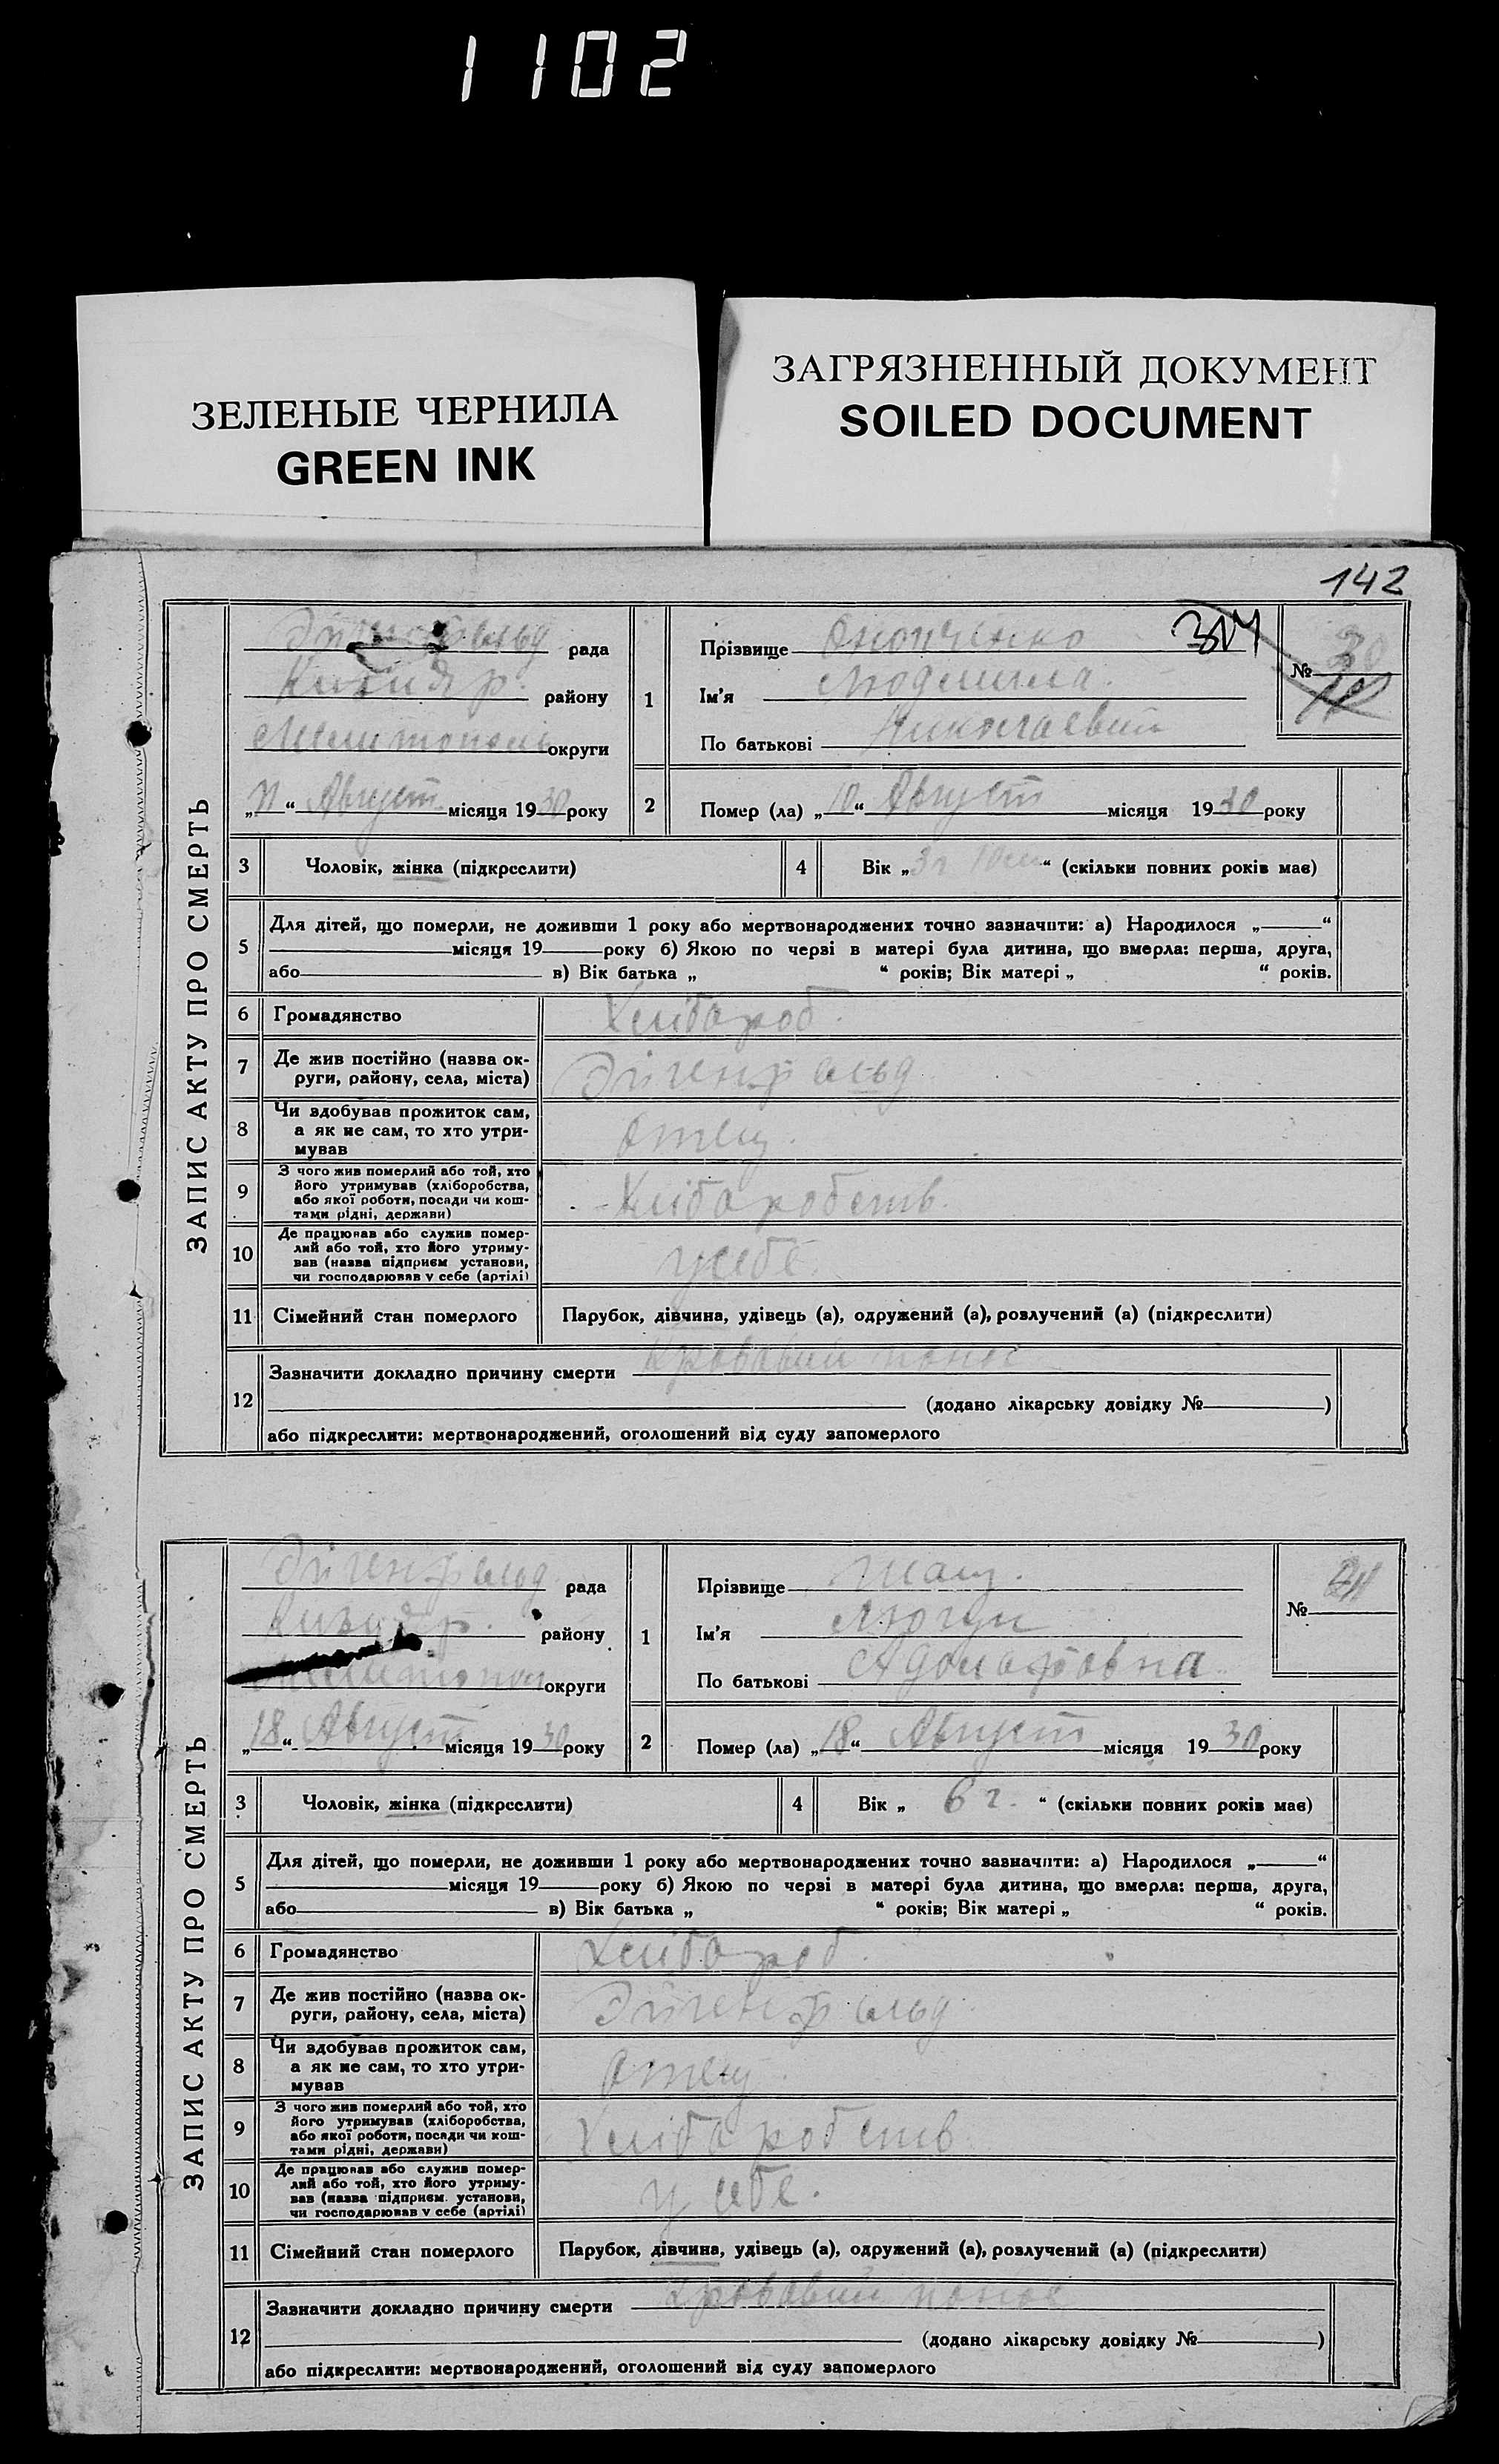 1102
ЗЕЛЕНЫЕ ЧЕРНИЛА
GREEN INK
ЗАГРЯЗНЕННЫЙ ДОКУМЕНТ
SOILED DOCUMENT
142
ЗАПИС АКТУ ПРО СМЕРТЬ
рада
району
округи
„11“ Август місяця 1930 року
1
Прізвище
Ім'я Людмила
По батькові
№ 30
2
Помер (ла) „10“ Август місяця 1930 року
3 Чоловік, жінка (підкреслити)
4 Вік „3 г 10 “ (скільки повних років має)
5
Для дітей, що померли, не доживши 1 року або мертвонароджених точно зазначити: а) Народилося „ “
місяця 19 року б) Якою по черзі в матері була дитина, що вмерла: перша, друга,
або в) Вік батька „ “ років; Вік матері „ “ років.
6 Громадянство Хлібороб.
7
Де жив постійно (назва ок-
руги, району, села, міста)
Эйгенфельд
8
Чи здобував прожиток сам,
а як не сам, то хто утри-
мував
Отец.
9
З чого жив померлий або той, хто
його утримував (хліборобства,
або якої роботи, посади чи кош-
тами рідні, держави)
Хліборобств.
10
Де працював або служив помер-
лий або той, хто його утриму-
вав (назва підприєм установи,
чи господарював у себе (артілі)
у себе.
11 Сімейний стан померлого Парубок, дівчина, удівець (а), одружений (а), розлучений (а) (підкреслити)
12
Зазначити докладно причину смерти Кровавий понос
(додано лікарську довідку № )
або підкреслити: мертвонароджений, оголошений від суду запомерлого
ЗАПИС АКТУ ПРО СМЕРТЬ
Эйгенфельд рада
району
округи
„18“ Август місяця 1930 року
1
Прізвище
Ім'я
По батькові Адольфовна
№
2
Помер (ла) „18“ Август місяця 1930 року
3 Чоловік, жінка (підкреслити)
4 Вік „ 6 г. “ (скільки повних років має)
5
Для дітей, що померли, не доживши 1 року або мертвонароджених точно зазначити: а) Народилося „ “
місяця 19 року б) Якою по черзі в матері була дитина, що вмерла: перша, друга,
або в) Вік батька „ “ років; Вік матері „ “ років.
6 Громадянство Хлібороб.
7
Де жив постійно (назва ок-
руги, району, села, міста)
Эйгенфельд
8
Чи здобував прожиток сам,
а як не сам, то хто утри-
мував
Отец.
9
З чого жив померлий або той, хто
його утримував (хліборобства,
або якої роботи, посади чи кош-
тами рідні, держави)
Хліборобств
10
Де працював або служив помер-
лий або той, хто його утриму-
вав (назва підприєм. установи,
чи господарював у себе (артілі)
у себе.
11 Сімейний стан померлого Парубок, дівчина, удівець (а), одружений (а), розлучений (а) (підкреслити)
12
Зазначити докладно причину смерти Кровавий понос
(додано лікарську довідку № )
або підкреслити: мертвонароджений, оголошений від суду запомерлого